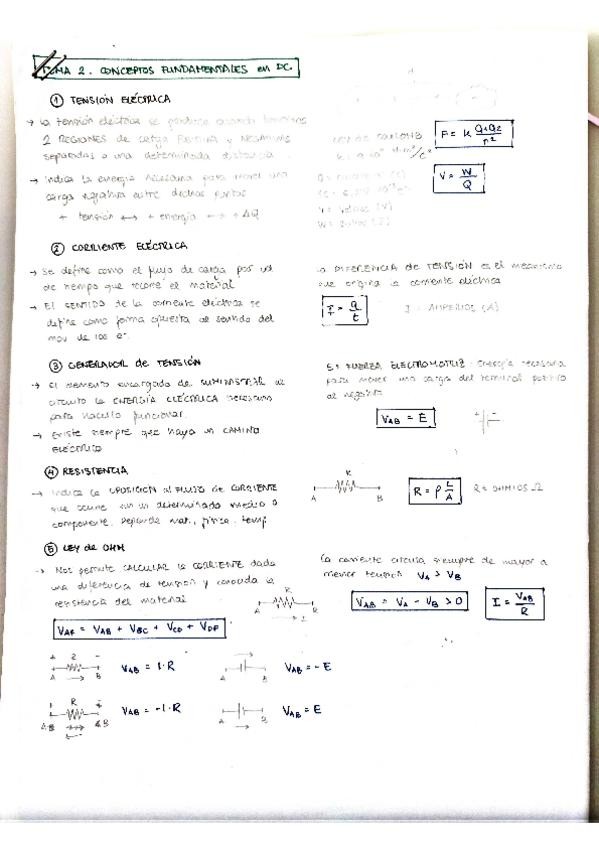 TEMA 2. CONCEPTOS FUNDAMENTALES en DC.
① TENSIÓN ELÉCTRICA
→ La tensión eléctrica se produce cuando tenemos
2 REGIONES de carga POSITIVA y NEGATIVAS
separadas a una determinada distancia.
→ Indica la energía necesaria para mover una
carga negativa entre dichos puntos
+ tensión ↔ + energía ↔ + ΔQ
LEY DE COULOMB
F = K Q1Q2 / r²
V = W / Q
V = Voltios (V)
W = Julios (J)
② CORRIENTE ELÉCTRICA
→ Se define como el flujo de carga por ud
de tiempo que recorre el material
→ El SENTIDO de la corriente eléctrica se
define como forma opuesta al sentido del
mov de los e-
La DIFERENCIA de TENSIÓN es el mecanismo
que origina la corriente eléctrica
I = q / t
I = AMPERIOS (A)
③ GENERADOR de TENSIÓN
→ El elemento encargado de SUMINISTRAR al
circuito la ENERGÍA ELÉCTRICA necesaria
para hacerlo funcionar.
→ Existe siempre que haya un CAMINO
ELÉCTRICO
FUERZA ELECTROMOTRIZ: Energía necesaria
para mover una carga del terminal positivo
al negativo
VAB = E
+ -
④ RESISTENCIA
→ Indica la OPOSICIÓN al FLUJO de CORRIENTE
que ocurre en un determinado medio o
componente. Depende mat., física, temp
R
A B
R = ρ L / A
R = OHMIOS Ω
⑤ LEY de OHM
→ Nos permite CALCULAR la CORRIENTE dada
una diferencia de tensión y conocida la
resistencia del material
R
A B
→ I
La corriente circula siempre de mayor a
menor tensión VA > VB
VAB = VA - VB > 0
I = VAB / R
VAF = VAB + VBC + VCD + VDF
+ R -
A B
VAB = I·R
A B
VAB = -E
- R +
A B
VAB = -I·R
A B
VAB = E